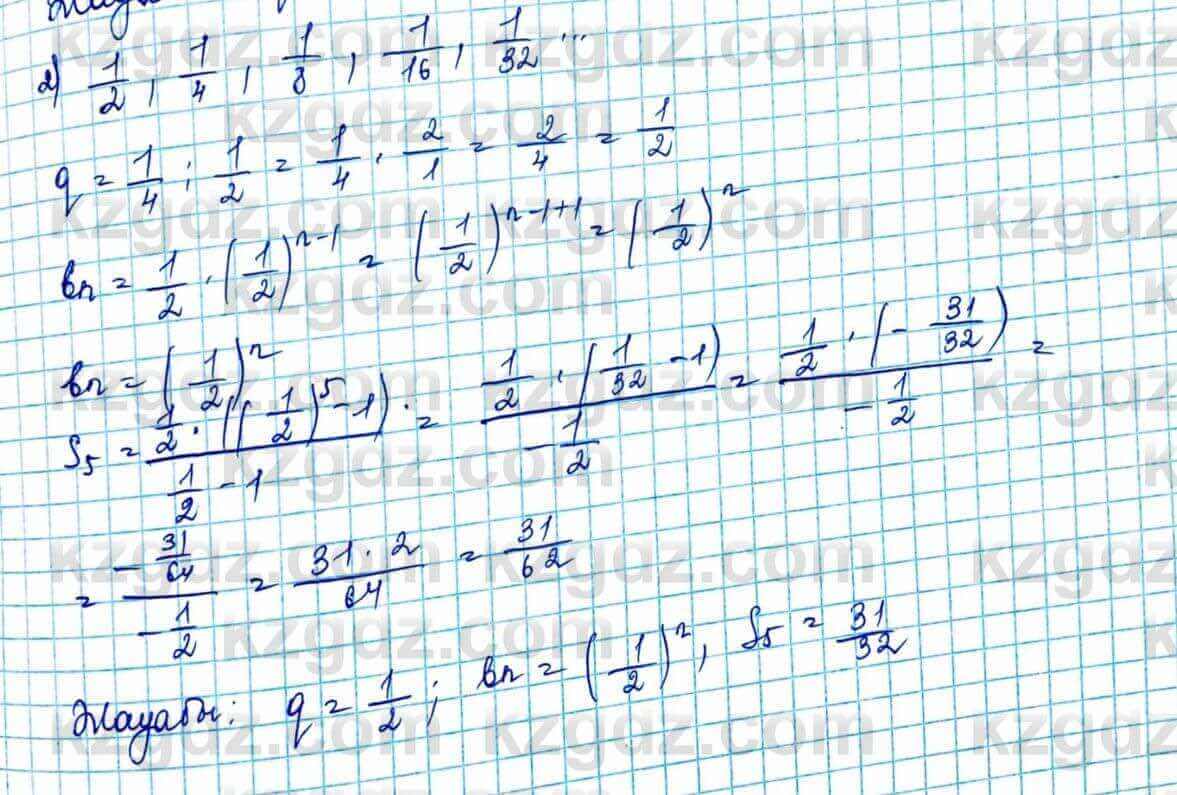 2) 1/2, 1/4, 1/8, 1/16, 1/32 ...
q = 1/4 : 1/2 = 1/4 · 2/1 = 2/4 = 1/2
bn = 1/2 · (1/2)^(n-1) = (1/2)^(n-1+1) = (1/2)^n
bn = (1/2)^n
S5 = (1/2 · ((1/2)^5 - 1))/(1/2 - 1) = (1/2 · (1/32 - 1))/(-1/2) = (1/2 · (-31/32))/(-1/2) =
= (-31/64)/(-1/2) = (31 · 2)/64 = 31/62
Жауабы: q = 1/2; bn = (1/2)^n, S5 = 31/32
kzgdz.com